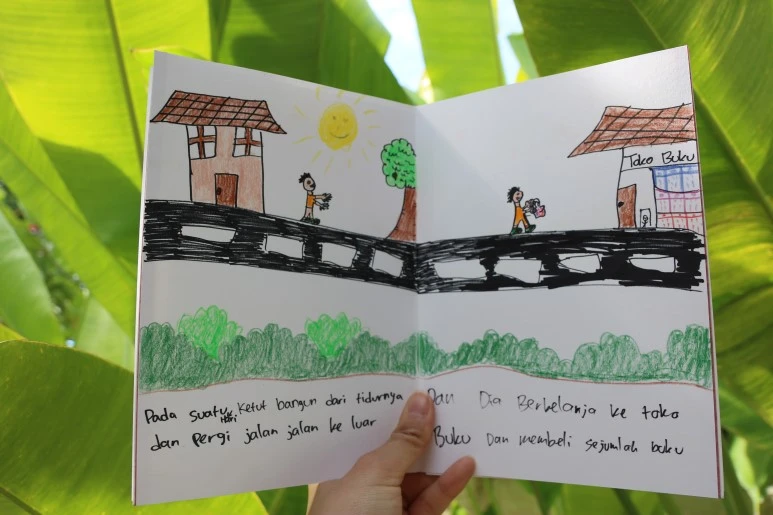 Toko Buku
Pada suatu hari, Ketut bangun dari tidurnya
dan pergi jalan jalan ke luar
Dan Dia Berbelanja ke toko
Buku Dan membeli sejumlah buku